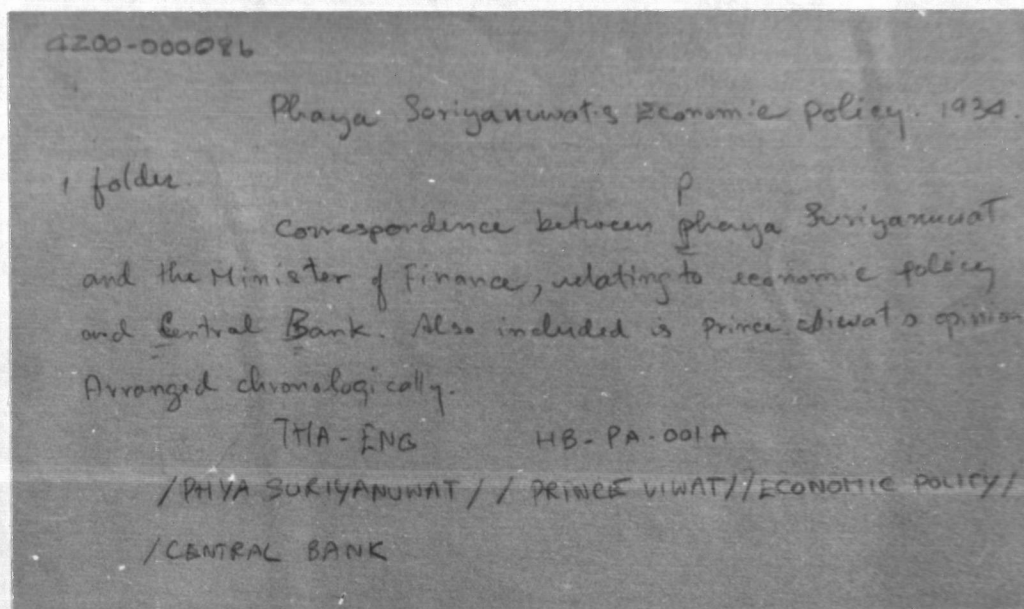 4200-000086
Phaya Suriyanuwat's Economic policy. 1934.
1 folder.
P
Correspondence between phaya Suriyanuwat
and the Minister of Finance, relating to economic policy
and Central Bank. Also included is Prince Viwat's opinion
Arranged chronologically.
THA-ENG HB-PA-001A
/PHYA SURIYANUWAT// PRINCE VIWAT//ECONOMIC POLICY/
/CENTRAL BANK